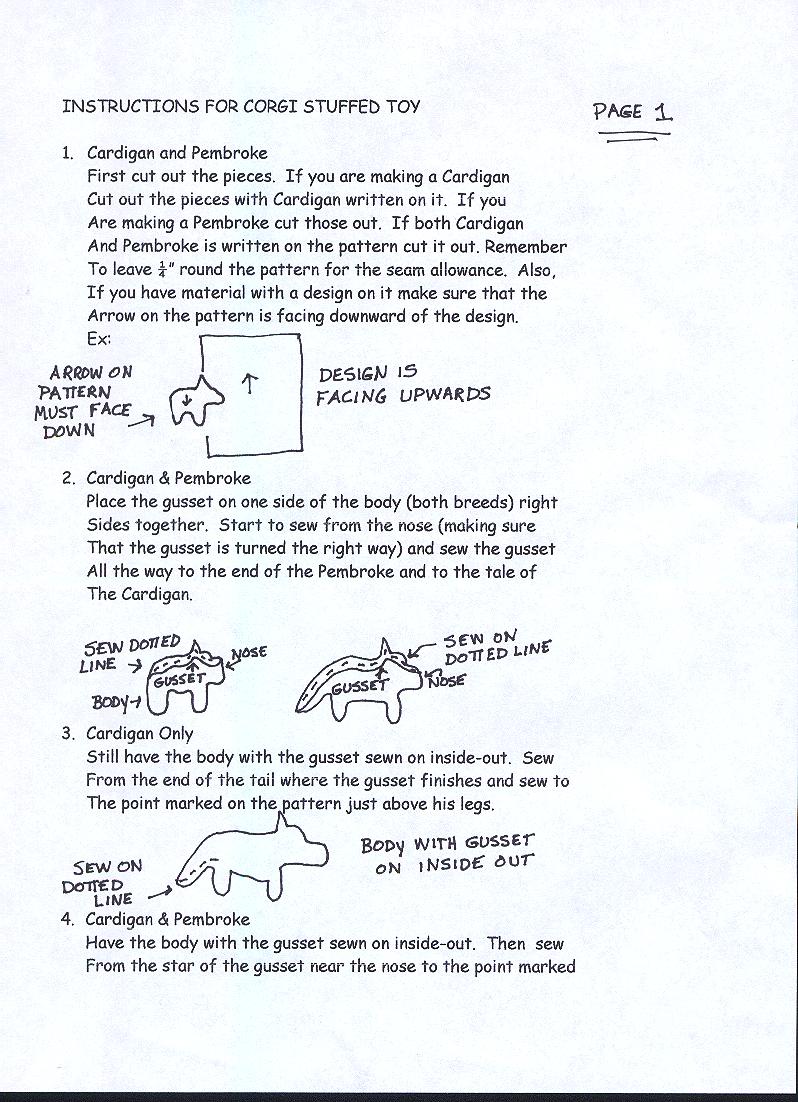 INSTRUCTIONS FOR CORGI STUFFED TOY
PAGE 1
1. Cardigan and Pembroke
First cut out the pieces. If you are making a Cardigan
Cut out the pieces with Cardigan written on it. If you
Are making a Pembroke cut those out. If both Cardigan
And Pembroke is written on the pattern cut it out. Remember
To leave ¼" round the pattern for the seam allowance. Also,
If you have material with a design on it make sure that the
Arrow on the pattern is facing downward of the design.
Ex:
ARROW ON
PATTERN
MUST FACE
DOWN
DESIGN IS
FACING UPWARDS
2. Cardigan & Pembroke
Place the gusset on one side of the body (both breeds) right
Sides together. Start to sew from the nose (making sure
That the gusset is turned the right way) and sew the gusset
All the way to the end of the Pembroke and to the tale of
The Cardigan.
SEW DOTTED
LINE
NOSE
GUSSET
BODY
SEW ON
DOTTED LINE
GUSSET
NOSE
3. Cardigan Only
Still have the body with the gusset sewn on inside-out. Sew
From the end of the tail where the gusset finishes and sew to
The point marked on the pattern just above his legs.
SEW ON
DOTTED
LINE
BODY WITH GUSSET
ON INSIDE OUT
4. Cardigan & Pembroke
Have the body with the gusset sewn on inside-out. Then sew
From the star of the gusset near the nose to the point marked